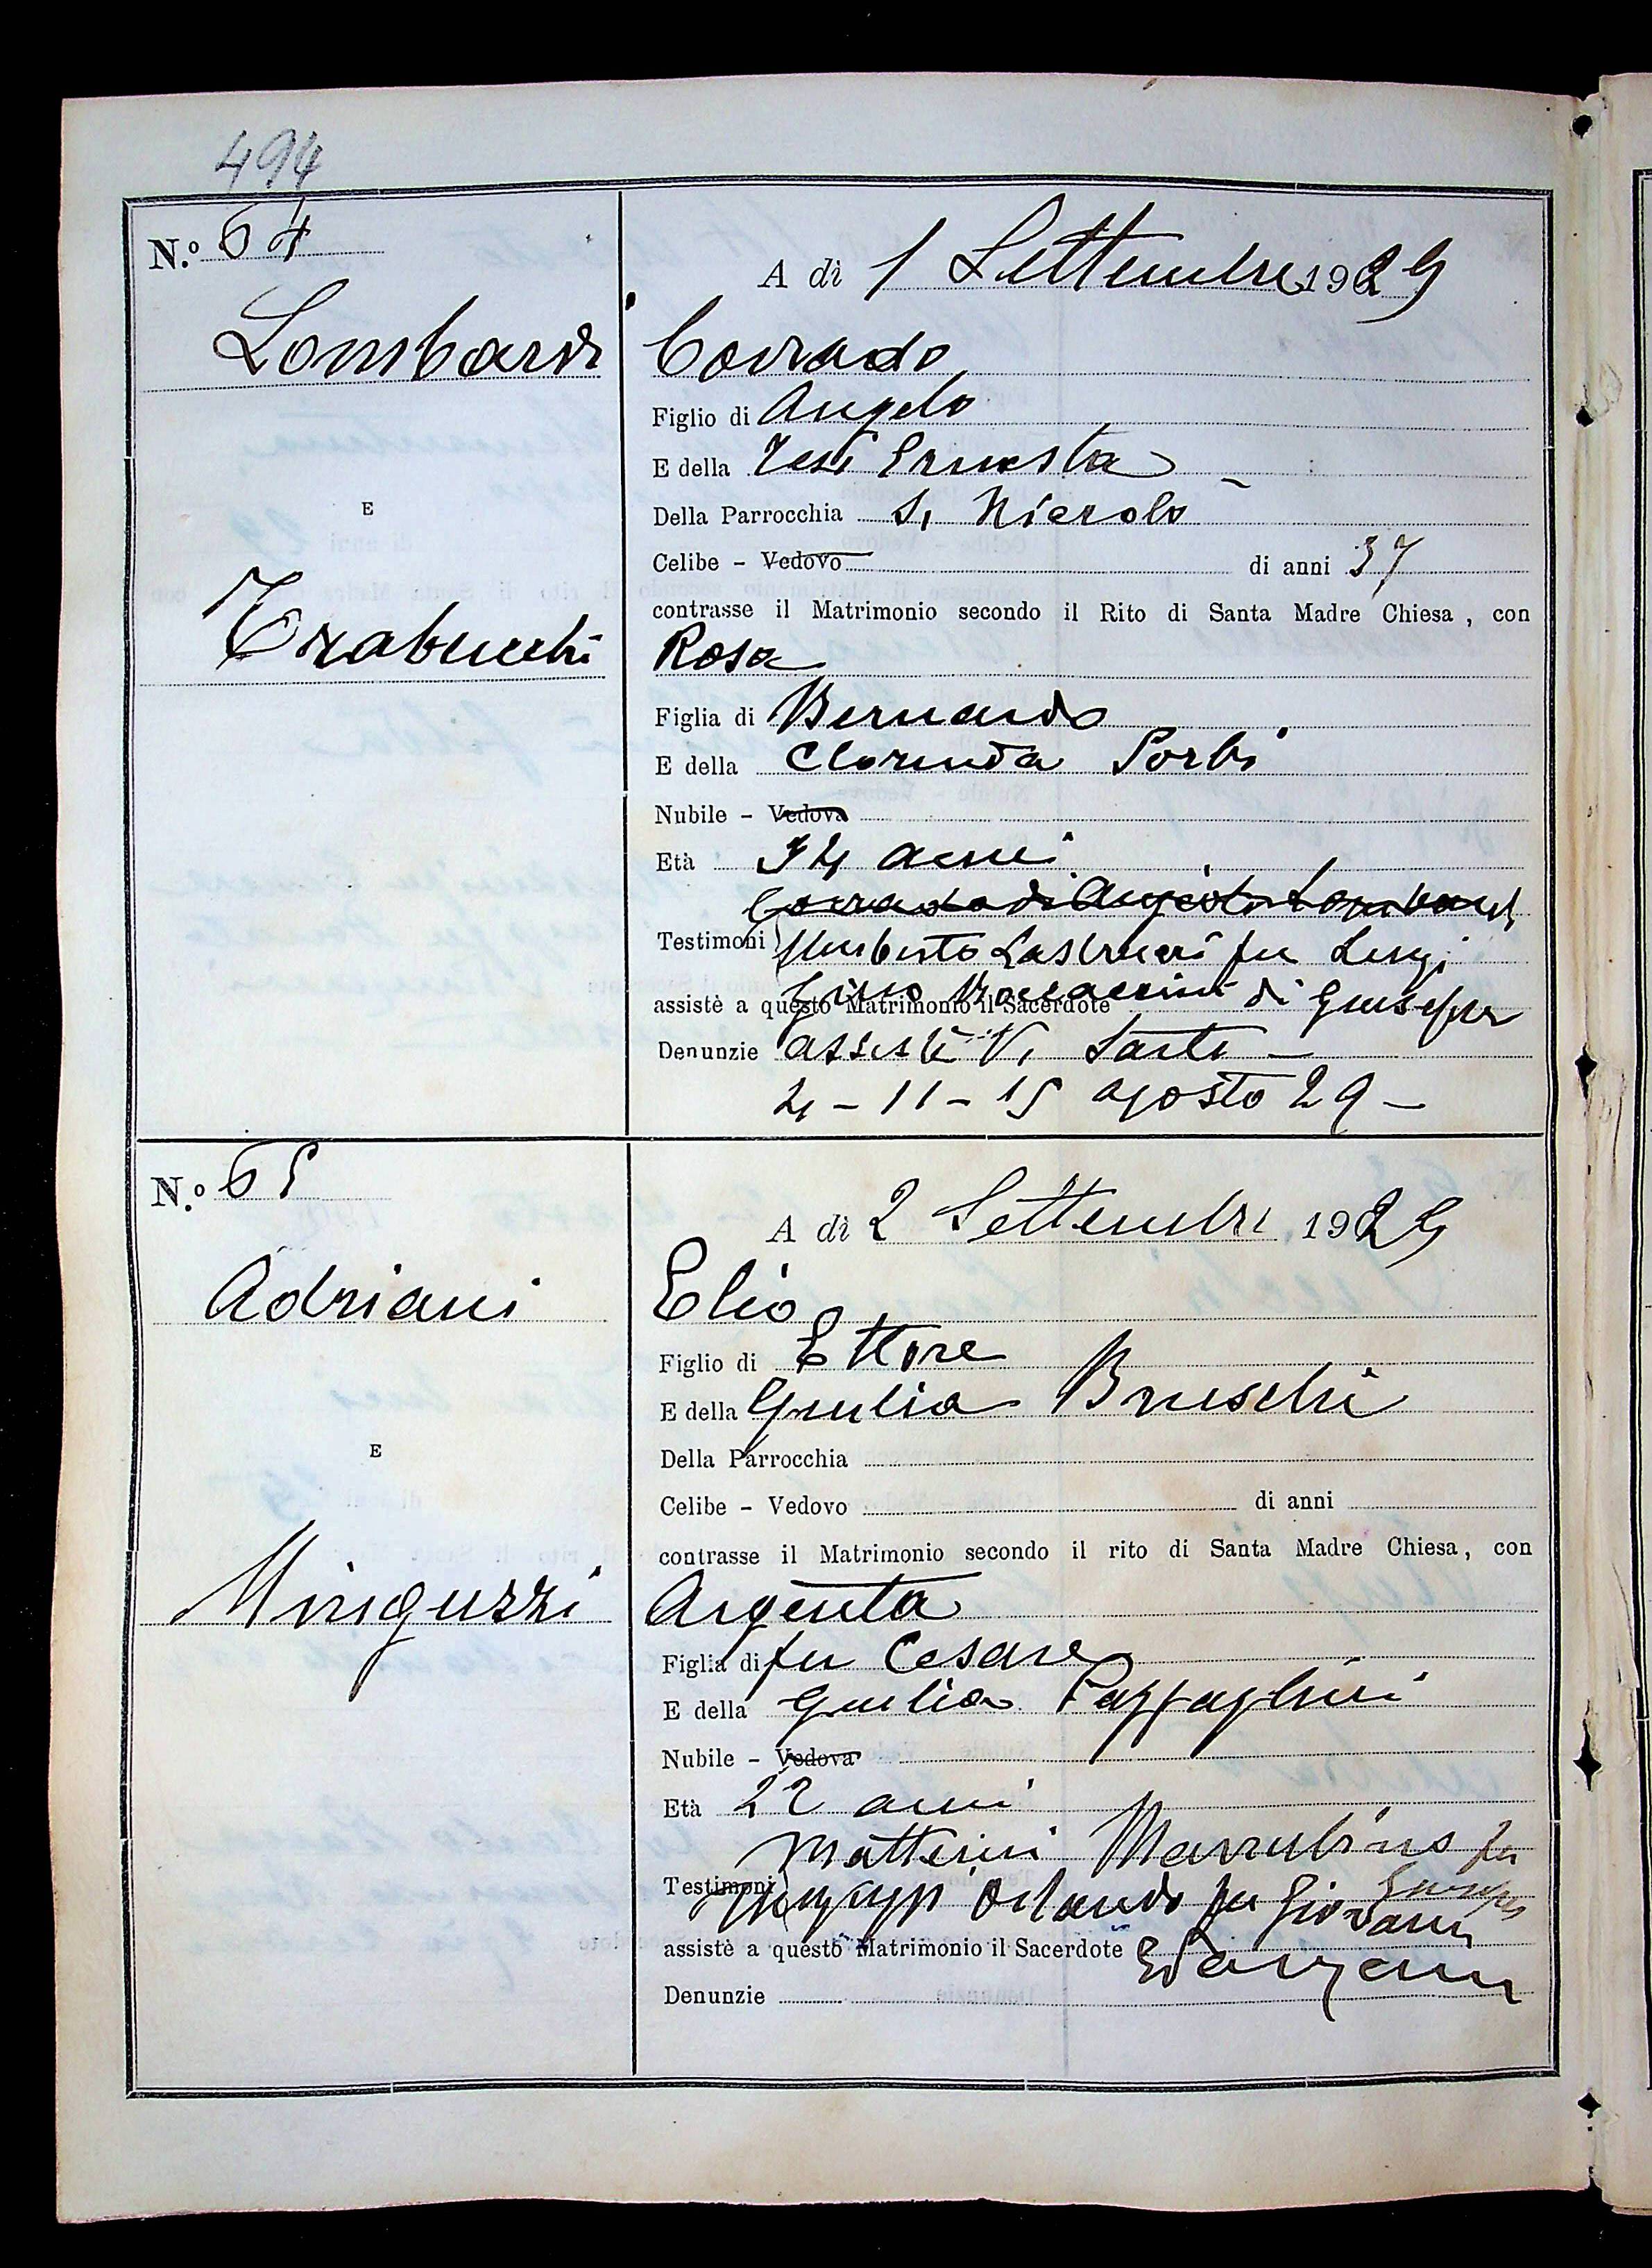 494
N.º 64
A dì 1 Settembre 1929
Lombardi
Corrado
Figlio di Angelo
E della Tesi Ernesta
Della Parrocchia S. Nicrolo
E
Celibe - Vedovo di anni 37
contrasse il Matrimonio secondo il Rito di Santa Madre Chiesa, con
Trabucchi
Rosa
Figlia di Bernardo
E della Clorinda Sorbi
Nubile - Vedova
Età 34 anni
Corrado di Angiolo Lombardi
Testimoni Umberto Lastrucci fu Luigi
di Giuseppe
assistè a questo Matrimonio il Sacerdote
Denunzie assistè V. Sarti -
4 - 11 - 15 agosto 29 -
N.º 65
A dì 2 Settembre 1929
Adriani
Elio
Figlio di Ettore
E della Giulia Bruschi
E
Della Parrocchia
Celibe - Vedovo di anni
contrasse il Matrimonio secondo il rito di Santa Madre Chiesa, con
Minguzzi
Argenta
Figlia di fu Cesare
E della Giulia Pazzaglini
Nubile - Vedova
Età 22 anni
Matteini fu
Giuseppe
Testimoni Orlando fu Giovanni
assistè a questo Matrimonio il Sacerdote
Denunzie